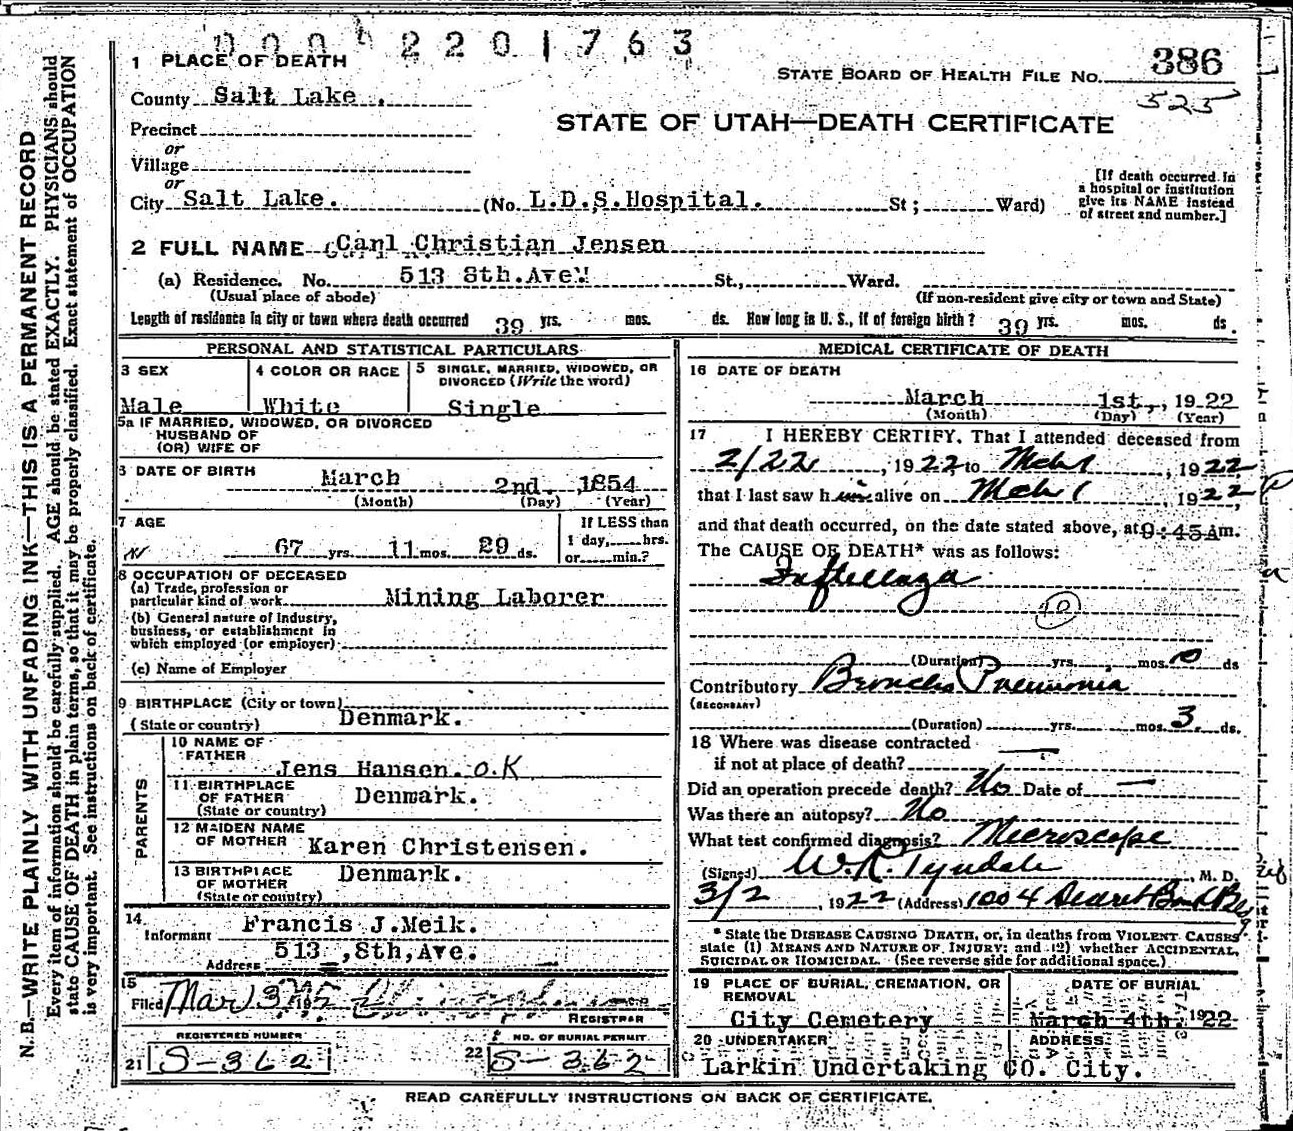 0 0 0 2 2 0 1 7 6 3
1 PLACE OF DEATH
STATE BOARD OF HEALTH FILE No. 386
525
County Salt Lake.
STATE OF UTAH—DEATH CERTIFICATE
Precinct
or
Village
or
City Salt Lake. (No. L.D.S.Hospital. St; Ward)
[If death occurred in
a hospital or institution
give its NAME instead
of street and number.]
2 FULL NAME Carl Christian Jensen
(a) Residence. No. 513 8th.Ave. St., Ward.
(Usual place of abode) (If non-resident give city or town and State)
Length of residence in city or town where death occurred 39 yrs. mos. ds. How long in U. S., if of foreign birth? 39 yrs. mos. ds.
PERSONAL AND STATISTICAL PARTICULARS
3 SEX
Male
4 COLOR OR RACE
White
5 SINGLE, MARRIED, WIDOWED, OR
DIVORCED (Write the word)
Single
5a IF MARRIED, WIDOWED, OR DIVORCED
HUSBAND OF
(OR) WIFE OF
6 DATE OF BIRTH
March 2nd 1854
(Month) (Day) (Year)
7 AGE
67 yrs. 11 mos. 29 ds.
If LESS than
1 day, hrs.
or min.?
8 OCCUPATION OF DECEASED
(a) Trade, profession or
particular kind of work Mining Laborer
(b) General nature of industry,
business, or establishment in
which employed (or employer)
(c) Name of Employer
9 BIRTHPLACE (City or town)
(State or country) Denmark.
PARENTS
10 NAME OF
FATHER
Jens Hansen. O.K
11 BIRTHPLACE
OF FATHER
(State or country)
Denmark.
12 MAIDEN NAME
OF MOTHER Karen Christensen.
13 BIRTHPLACE
OF MOTHER
(State or country)
Denmark.
14
Informant Francis J.Meik.
Address 513 ,8th,Ave.
15
Filed Mar 3
REGISTRAR
REGISTERED NUMBER
21 S-362
NO. OF BURIAL PERMIT
22 S-362
MEDICAL CERTIFICATE OF DEATH
16 DATE OF DEATH
March 1st, 1922
(Month) (Day) (Year)
17 I HEREBY CERTIFY, That I attended deceased from
2/22, 1922 to Mch 1, 1922
that I last saw him alive on Mch 1, 1922,
and that death occurred, on the date stated above, at 9:45 Am.
The CAUSE OF DEATH* was as follows:
Influenza
10
(Duration) yrs. mos. 10 ds
Contributory Broncho Pneumonia
(SECONDARY)
(Duration) yrs. mos. 3 ds.
18 Where was disease contracted
if not at place of death? —
Did an operation precede death? No Date of —
Was there an autopsy? No
What test confirmed diagnosis? Microscope
(Signed) W.R. Tyndale, M. D.
3/2, 1922 (Address) 1004 Deseret Bank Bldg
* State the DISEASE CAUSING DEATH, or, in deaths from VIOLENT CAUSES,
state (1) MEANS AND NATURE OF INJURY; and (2) whether ACCIDENTAL,
SUICIDAL OR HOMICIDAL. (See reverse side for additional space.)
19 PLACE OF BURIAL, CREMATION, OR
REMOVAL
City Cemetery
DATE OF BURIAL
March 4th. 1922
20 UNDERTAKER
ADDRESS
Larkin Undertaking CO. City.
READ CAREFULLY INSTRUCTIONS ON BACK OF CERTIFICATE.
N. B.—WRITE PLAINLY WITH UNFADING INK—THIS IS A PERMANENT RECORD
Every item of information should be carefully supplied. AGE should be stated EXACTLY. PHYSICIANS should
state CAUSE OF DEATH in plain terms, so that it may be properly classified. Exact statement of OCCUPATION
is very important. See instructions on back of certificate.